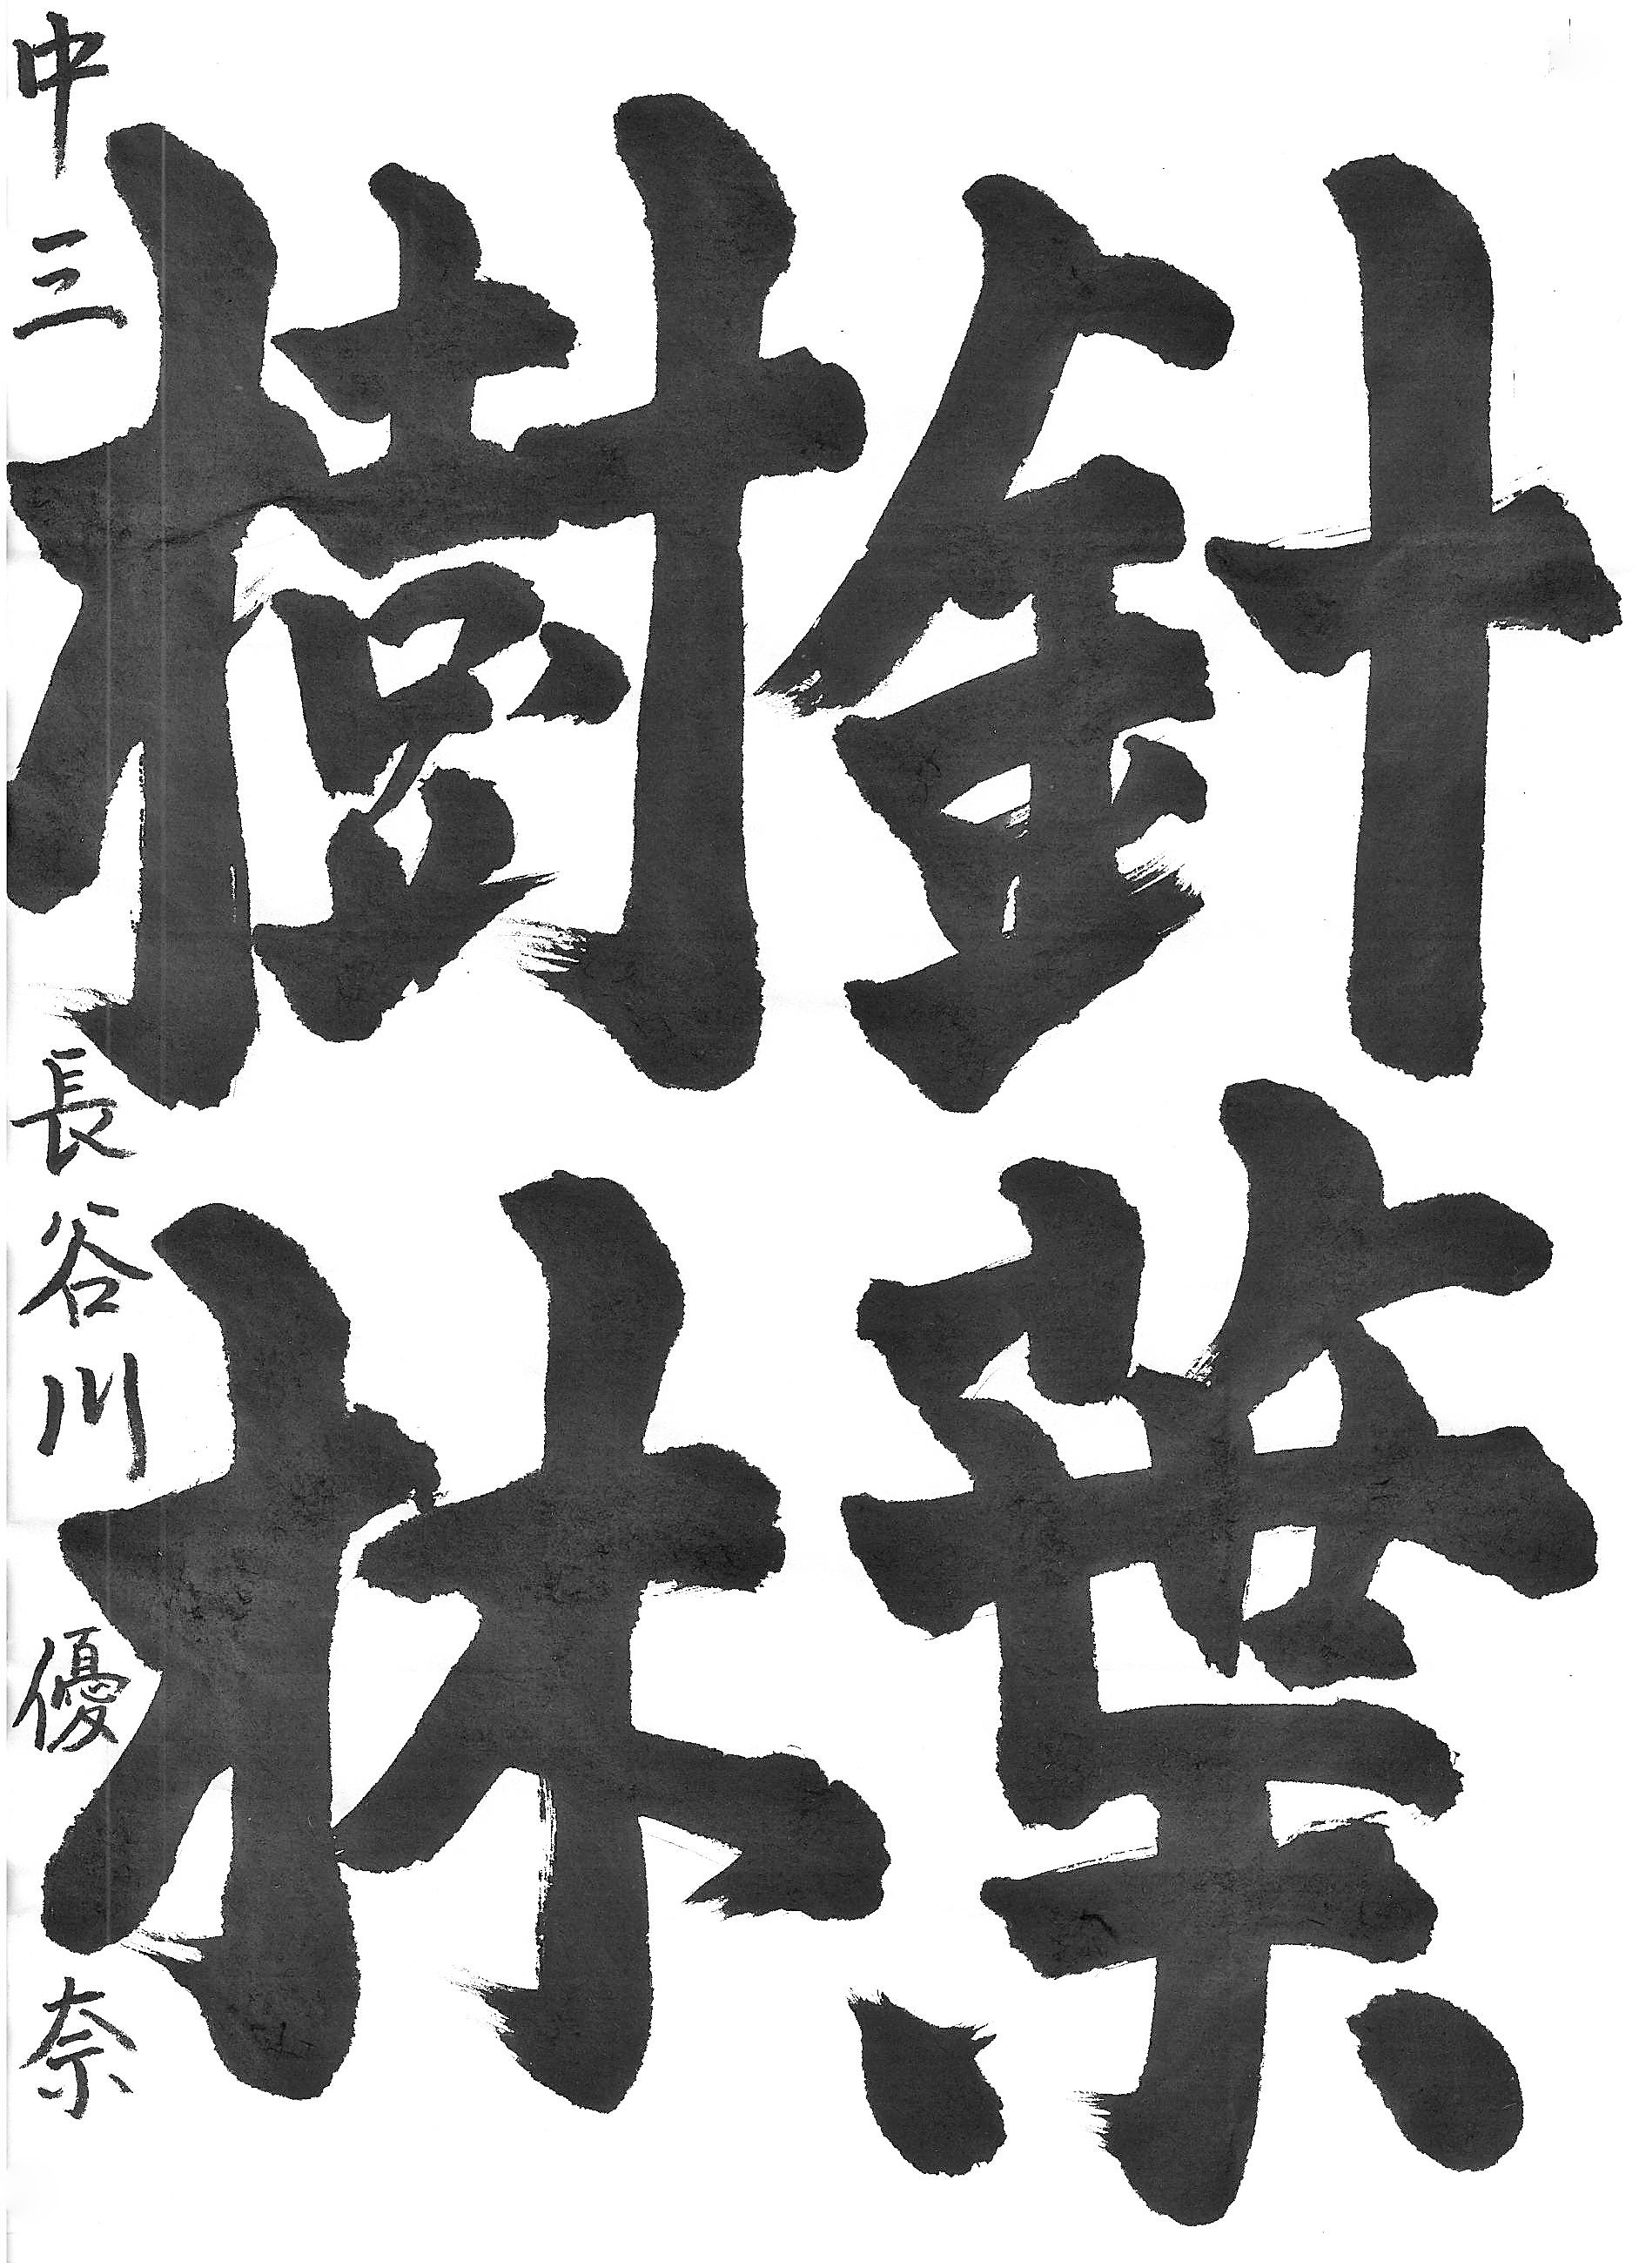 針葉
樹林
中三 長谷川優奈